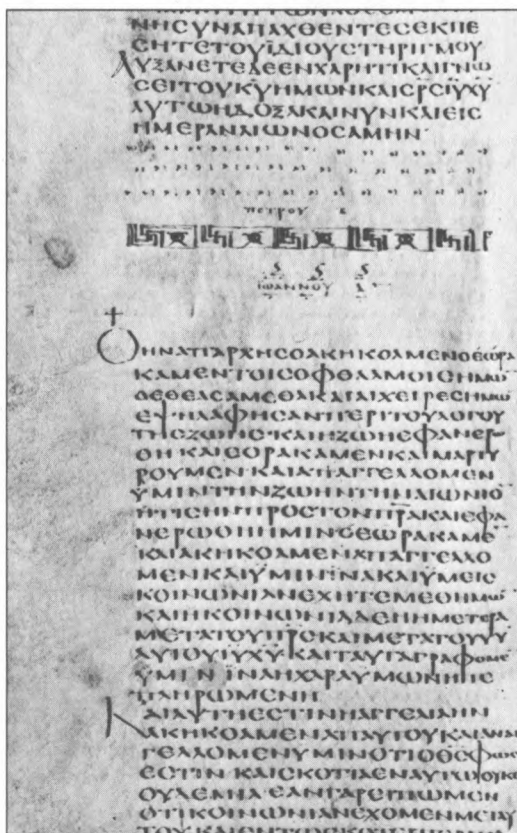 ΝΗϹΥΝΑΠΑΧΘΕΝΤΕϹΕΚΠΕ
ϹΗΤΕΤΟΥΙΔΙΟΥϹΤΗΡΙΓΜΟΥ
ΑΥΞΑΝΕΤΕΔΕΕΝΧΑΡΗΤΙΚΑΙΓΝΩ
ϹΕΙΤΟΥΚΥΗΜΩΝΚΑΙϹΡϹΙΥΧΥ
ΑΥΤΩΗΔΟΞΑΚΑΙΝΥΝΚΑΙΕΙϹ
ΗΜΕΡΑΝΑΙΩΝΟϹΑΜΗΝ
ΠΕΤΡΟΥ Β
ΙΩΑΝΝΟΥ Α
ΟΗΝΑΠΑΡΧΗϹΟΑΚΗΚΟΑΜΕΝΟΕΩΡΑ
ΚΑΜΕΝΤΟΙϹΟΦΘΑΛΜΟΙϹΗΜΩ
ΟΕΘΕΑϹΑΜΕΘΑΚΑΙΑΙΧΕΙΡΕϹΗΜΩ
ΕΨΗΛΑΦΗϹΑΝΠΕΡΙΤΟΥΛΟΓΟΥ
ΤΗϹΖΩΗϹΚΑΙΗΖΩΗΕΦΑΝΕΡ
ΘΗΚΑΙΕΟΡΑΚΑΜΕΝΚΑΙΜΑΡΤΥ
ΡΟΥΜΕΝΚΑΙΑΠΑΓΓΕΛΛΟΜΕΝ
ΥΜΙΝΤΗΝΖΩΗΝΤΗΝΑΙΩΝΙΟ
ΗΤΙϹΗΝΠΡΟϹΤΟΝΠΡΑΚΑΙΕΦΑ
ΝΕΡΩΘΗΗΜΙΝΟΕΩΡΑΚΑΜΕ
ΚΑΙΑΚΗΚΟΑΜΕΝΑΠΑΓΓΕΛΛΟ
ΜΕΝΚΑΙΫΜΙΝΪΝΑΚΑΙΫΜΕΙϹ
ΚΟΙΝΩΝΙΑΝΕΧΗΤΕΜΕΘΗΜΩ
ΚΑΙΗΚΟΙΝΩΝΙΑΔΕΗΗΜΕΤΕΡΑ
ΜΕΤΑΤΟΥΠΡϹΚΑΙΜΕΤΑΤΟΥΥΥ
ΑΥΤΟΥΙΥΧΥΚΑΙΤΑΥΤΑΓΡΑΦΟΜΕ
ΫΜΙΝΪΝΑΗΧΑΡΑΥΜΩΝΗΠΕ
ΠΛΗΡΩΜΕΝΗ
ΚΑΙΑΥΤΗΕϹΤΙΝΗΑΓΓΕΛΙΑΗΝ
ΑΚΗΚΟΑΜΕΝΑΠΑΥΤΟΥΚΑΙΑΝΑΓ
ΓΕΛΛΟΜΕΝΥΜΙΝΟΤΙΟΘϹΦΩϹ
ΕϹΤΙΝΚΑΙϹΚΟΤΙΑΕΝΑΥΤΩΟΥΚΕ
ΟΥΔΕΜΙΑΕΑΝΓΑΡΕΙΠΩΜΕΝ
ΟΤΙΚΟΙΝΩΝΙΑΝΕΧΟΜΕΝΜΕΤΑΥ